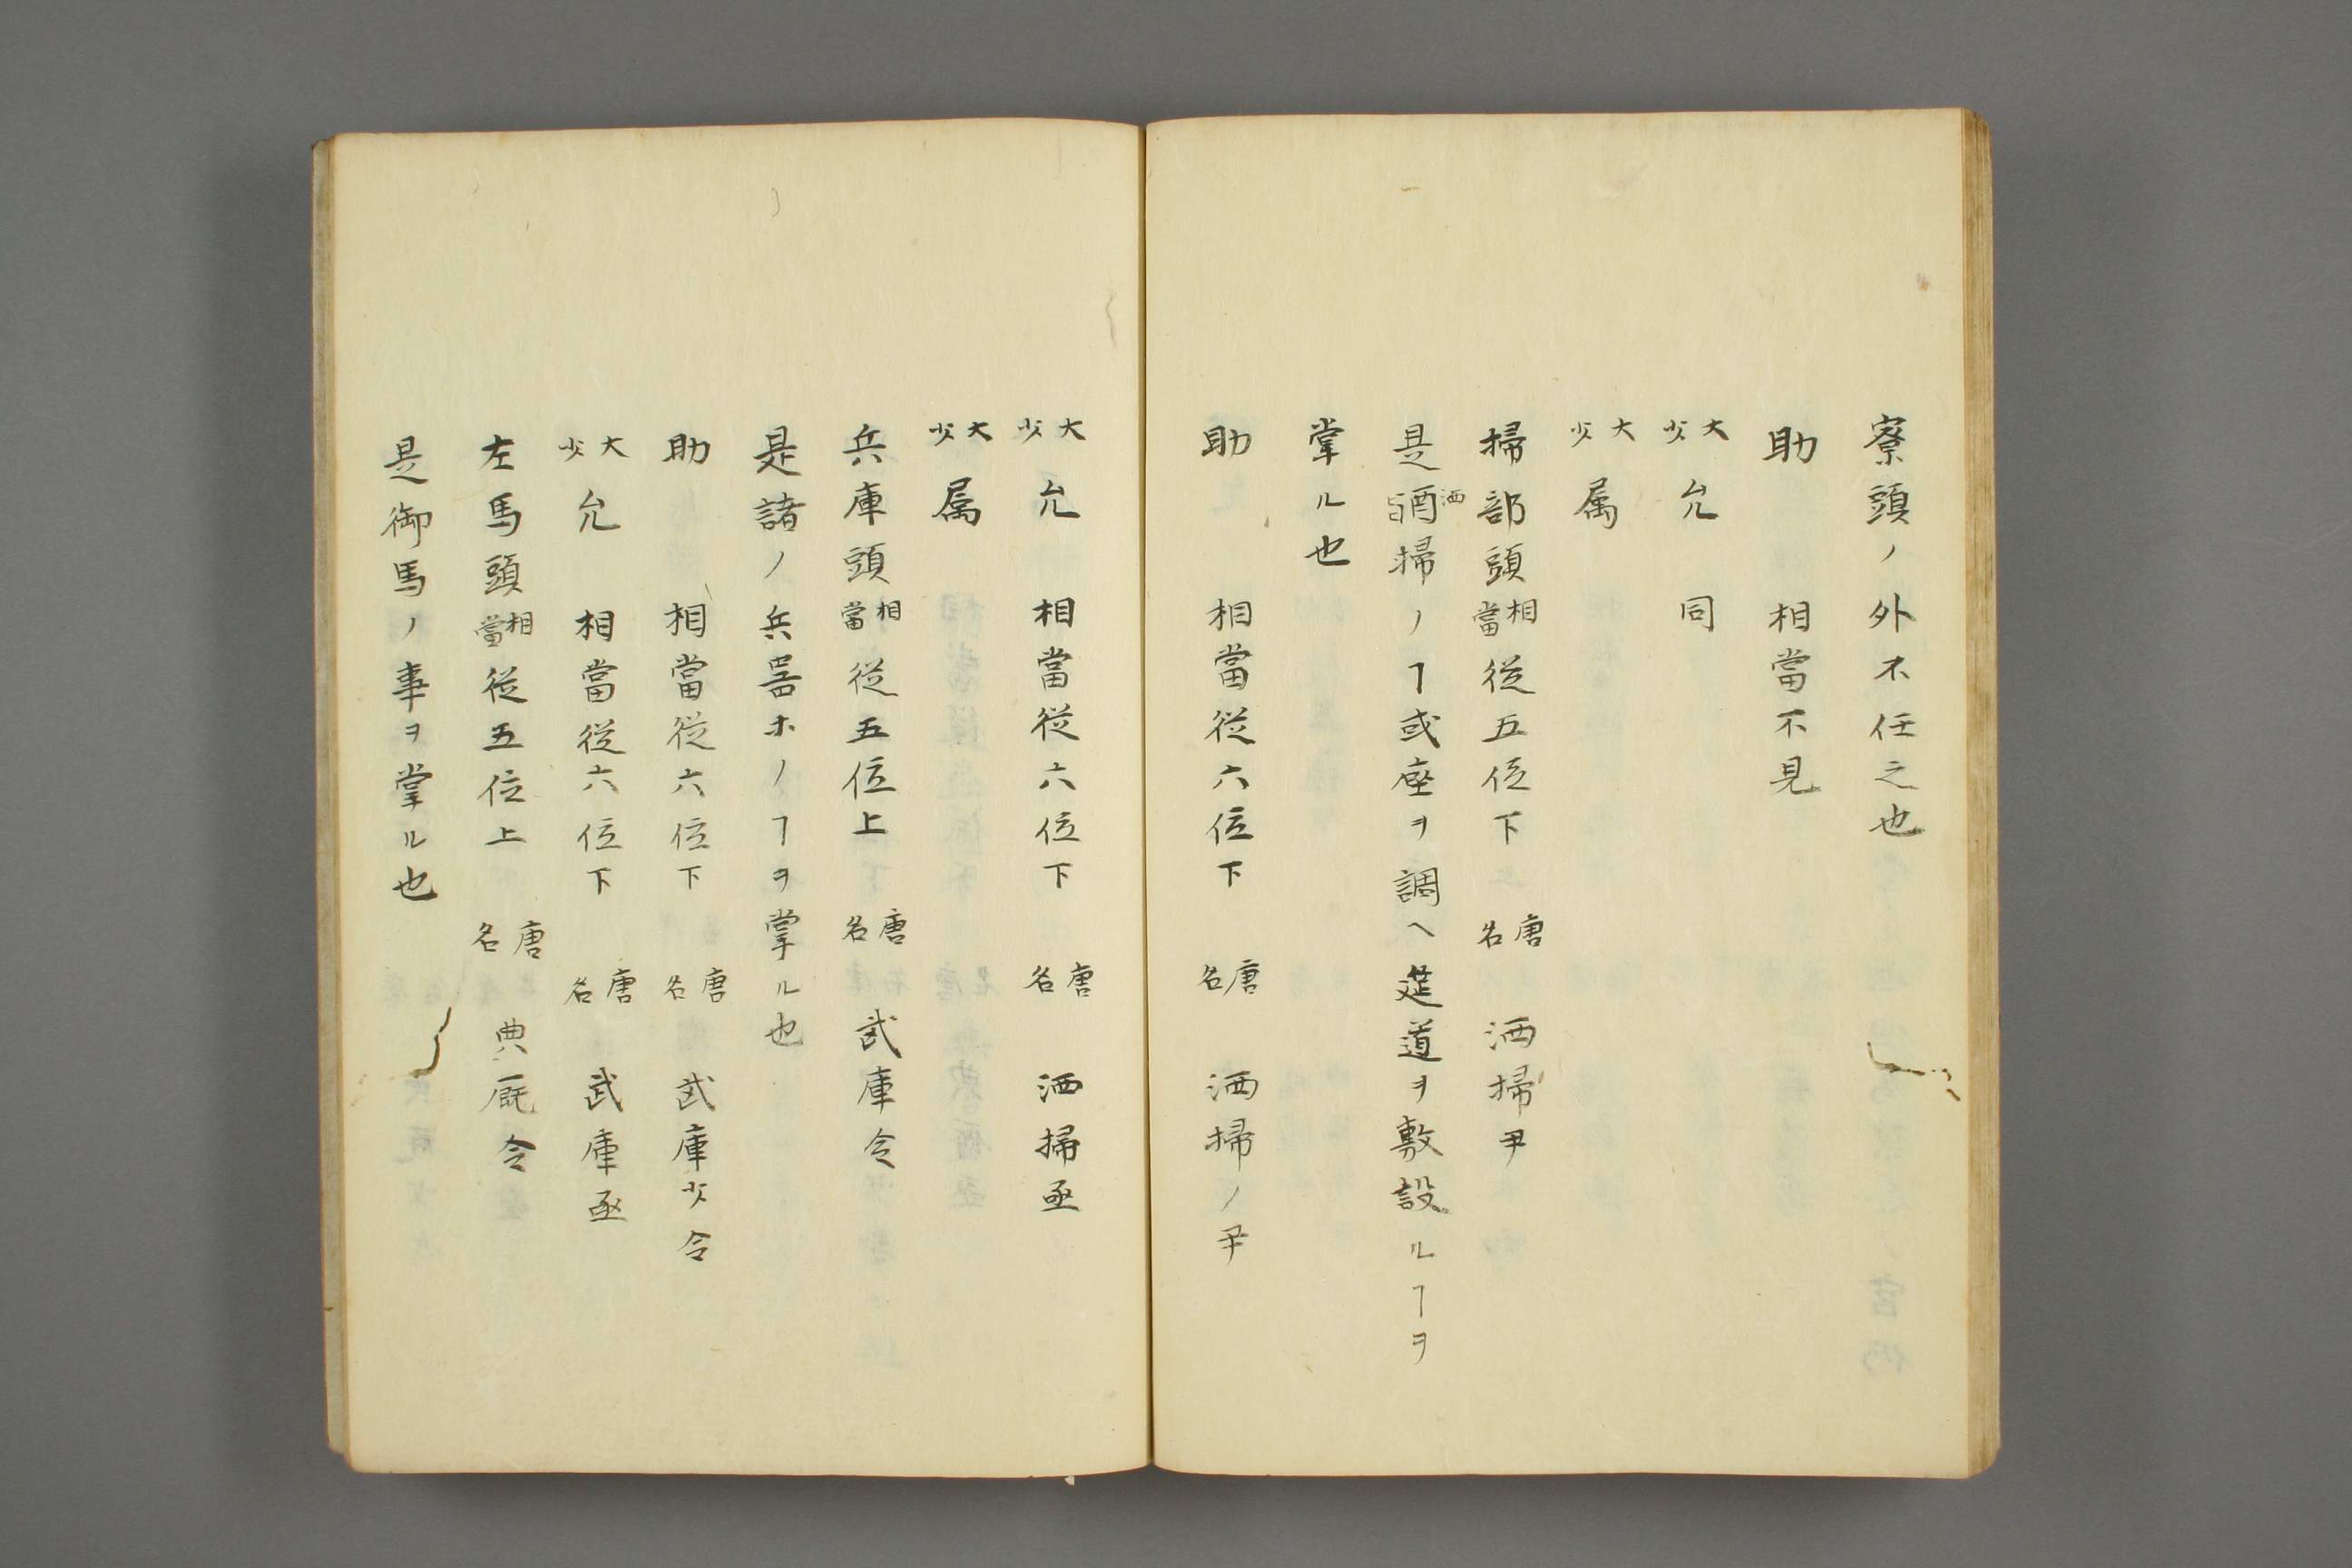 寮頭ノ外不任之也
助 相當不見
大少允 同
大少属
掃部頭相當従五位下 唐名 洒掃尹
是酒洒掃ノヿ或座ヲ調ヘ筵道ヲ敷設ルヿヲ
掌ル也
助 相當従六位下 唐名 洒掃ノ尹
大少允 相當従六位下 唐名 洒掃丞
大少属
兵庫頭相當従五位上 唐名 武庫令
是諸ノ兵器ホノヿヲ掌ル也
助 相當従六位下 唐名 武庫少令
大少允 相當従六位下 唐名 武庫丞
左馬頭相當従五位上 唐名 典厩令
是御馬ノ事ヲ掌ル也